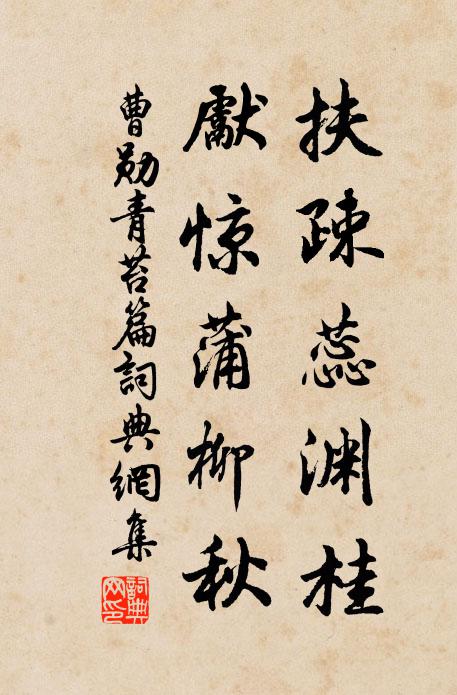 扶疎蕊渊桂
獻惊蒲柳秋
曹勋青苔篇詞典網集
詞典网印